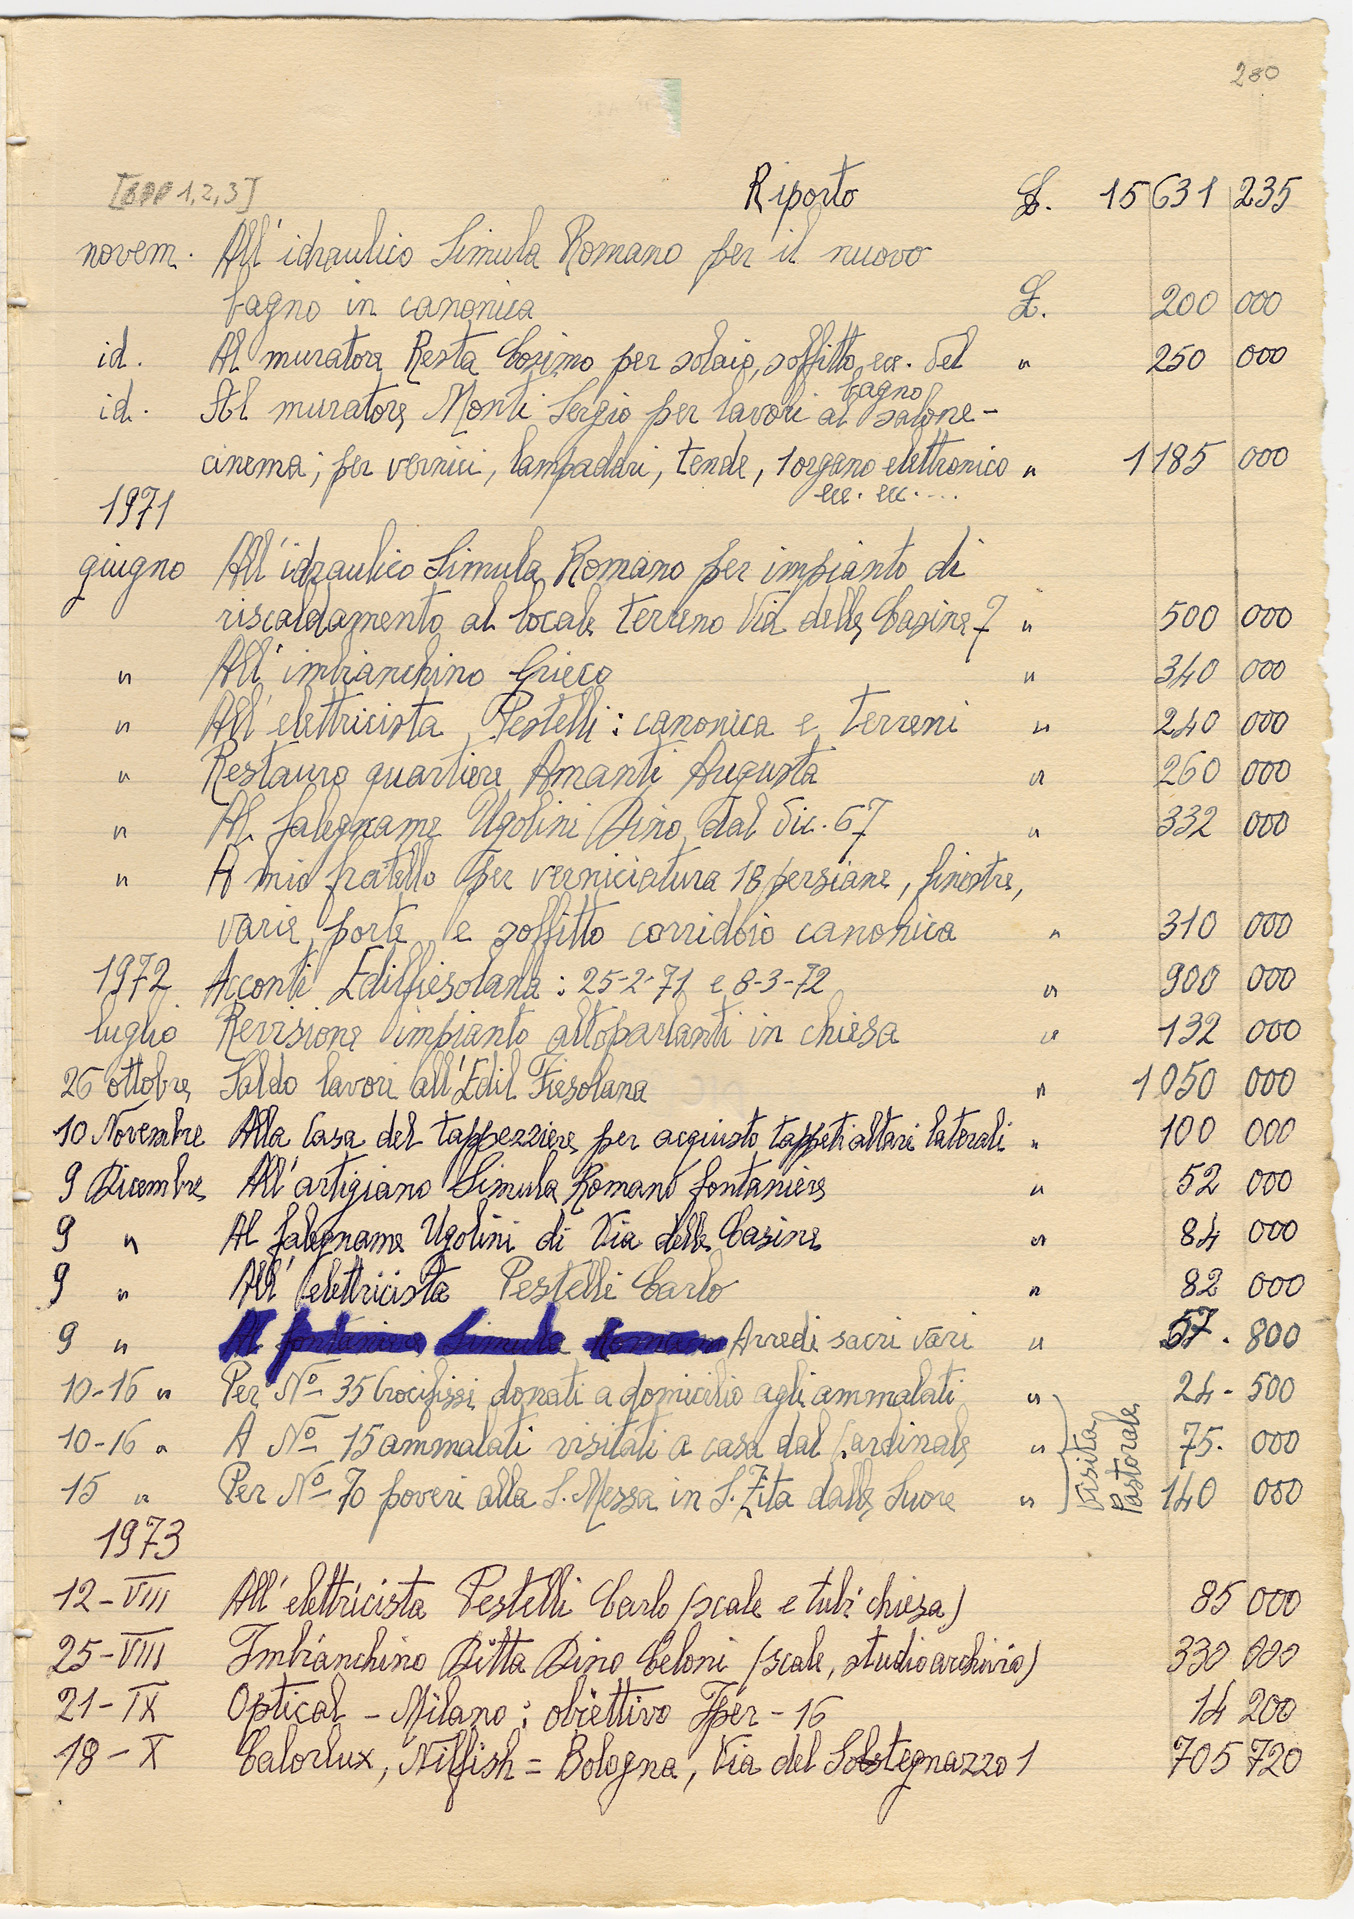 280
[BPP 1,2,3] Riporto £. 15 631 235
novem. All' idraulico Simula Romano per il nuovo
bagno in canonica £. 200 000
id. Al muratore Resta Cosimo per solaio, soffitto, ecc. del " 250 000
bagno
id. Al muratore Monti Sergio per lavori al salone-
cinema; per vernici, lampadari, tende, 1 organo elettronico " 1 185 000
ecc. ecc....
1971
giugno All' idraulico Simula Romano per impianto di
riscaldamento al locale terreno Via delle Casine 7 " 500 000
" All' imbianchino Grieco " 340 000
" All' elettricista Pestelli: canonica e terreni " 240 000
" Restauro quartiere Amanti Augusta " 260 000
" Al falegname Ugolini Dino dal dic. 67 " 332 000
" A mio fratello per verniciatura 18 persiane, finestre,
varie porte e soffitto corridoio canonica " 310 000
1972 Acconti Edilfiesolana: 25-2-71 e 8-3-72 " 900 000
luglio Revisione impianto altoparlanti in chiesa " 132 000
26 ottobre Saldo lavori all'Edil Fiesolana " 1 050 000
10 Novembre Alla Casa del tappezziere per acquisto tappeti altari laterali " 100 000
9 Dicembre All' artigiano Simula Romano fontaniere " 52 000
9 " Al falegname Ugolini di Via delle Casine " 84 000
9 " All' elettricista Pestelli Carlo " 82 000
9 " Al fontaniere Simula Romano Arredi sacri vari " 57. 800
10-16 " Per No 35 Crocifissi donati a domicilio agli ammalati " 24- 500
10-16 " A No 15 ammalati visitati a casa dal Cardinale " 75. 000
15 " Per No 70 poveri alla S. Messa in S. Zita dalle Suore " 140 000
Visita
Pastorale
1973
12-VIII All' elettricista Pestelli Carlo (scale e tubi chiesa) 85 000
25-VIII Imbianchino Ditta Dino Celoni (scale, studio archivio) 330 000
21-IX Optical - Milano: obiettivo Iper-16 14 200
18-X Calorlux, Nilfish = Bologna, Via del Sostegnazzo 1 705 720